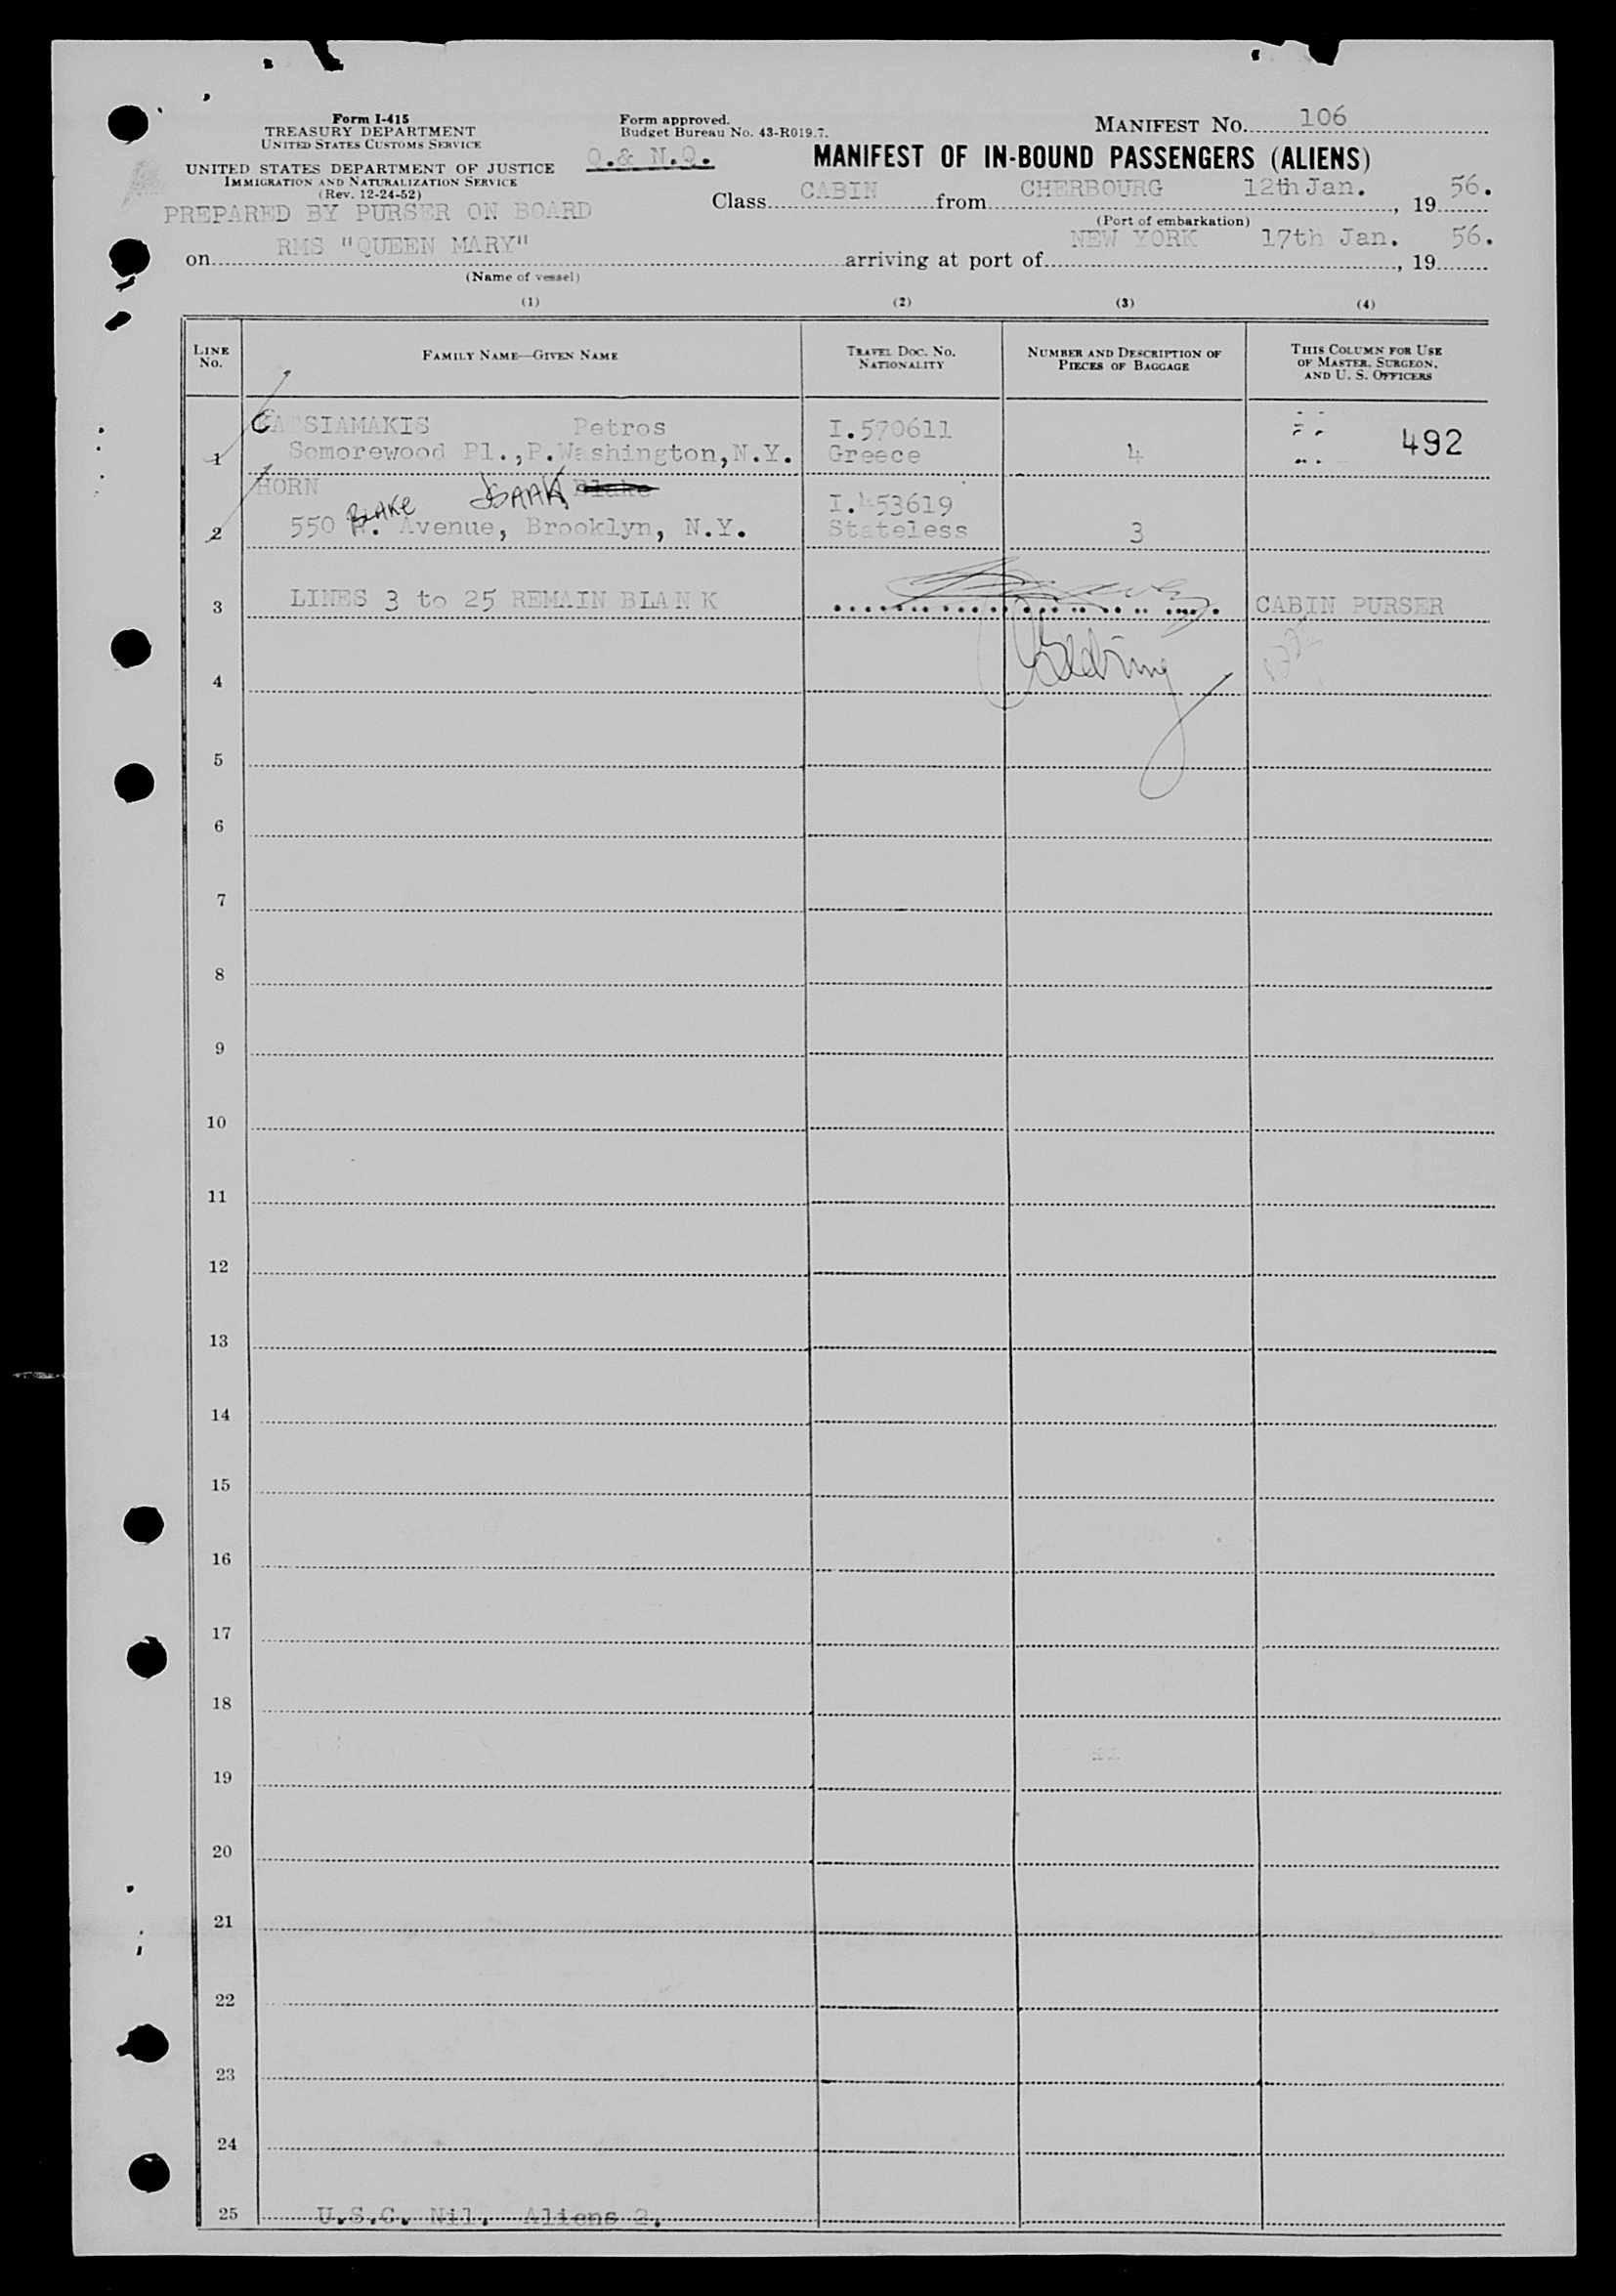 Form I-415
TREASURY DEPARTMENT
UNITED STATES CUSTOMS SERVICE
UNITED STATES DEPARTMENT OF JUSTICE
IMMIGRATION AND NATURALIZATION SERVICE
(Rev. 12-24-52)
PREPARED BY PURSER ON BOARD
Form approved.
Budget Bureau No. 43-R019.7.
Q.& N.Q.
MANIFEST No. 106
MANIFEST OF IN-BOUND PASSENGERS (ALIENS)
Class CABIN from CHERBOURG 12th Jan. , 19 56.
(Port of embarkation)
on RMS "QUEEN MARY" arriving at port of NEW YORK 17th Jan. , 19 56.
(Name of vessel)
(1) (2) (3) (4)
LINE No. FAMILY NAME—GIVEN NAME TRAVEL DOC. No. NATIONALITY NUMBER AND DESCRIPTION OF PIECES OF BAGGAGE THIS COLUMN FOR USE OF MASTER, SURGEON, AND U. S. OFFICERS
SIAMAKIS Petros I.570611
1 Somorewood Pl.,P.Washington,N.Y. Greece 4 492
HORN ISAAK Blake I.453619
2 550 BLAKE Avenue, Brooklyn, N.Y. Stateless 3
3 LINES 3 to 25 REMAIN BLANK CABIN PURSER
4
5
6
7
8
9
10
11
12
13
14
15
16
17
18
19
20
21
22
23
24
25 U.S.C. Nil. Aliens 2.